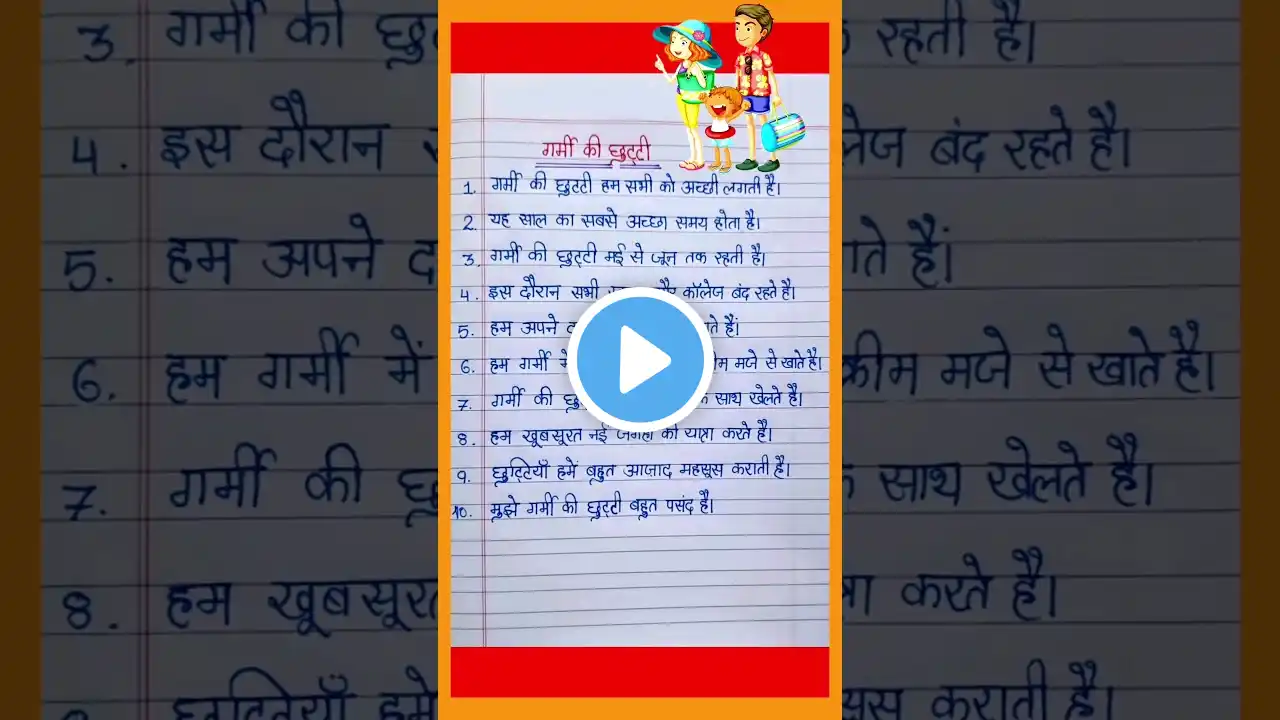 गर्मी की छुट्टी
1. गर्मी की छुट्टी हम सभी को अच्छी लगती है।
2. यह साल का सबसे अच्छा समय होता है।
3. गर्मी की छुट्टी मई से जून तक रहती है।
4. इस दौरान सभी और कॉलेज बंद रहते है।
5. हम अपने
6. हम गर्मी में क्रीम मजे से खाते है।
7. गर्मी की साथ खेलते है।
8. हम खूबसूरत नई जगहों की यात्रा करते है।
9. छुट्टियाँ हमें बहुत आज़ाद महसूस कराती है।
10. मुझे गर्मी की छुट्टी बहुत पसंद है।